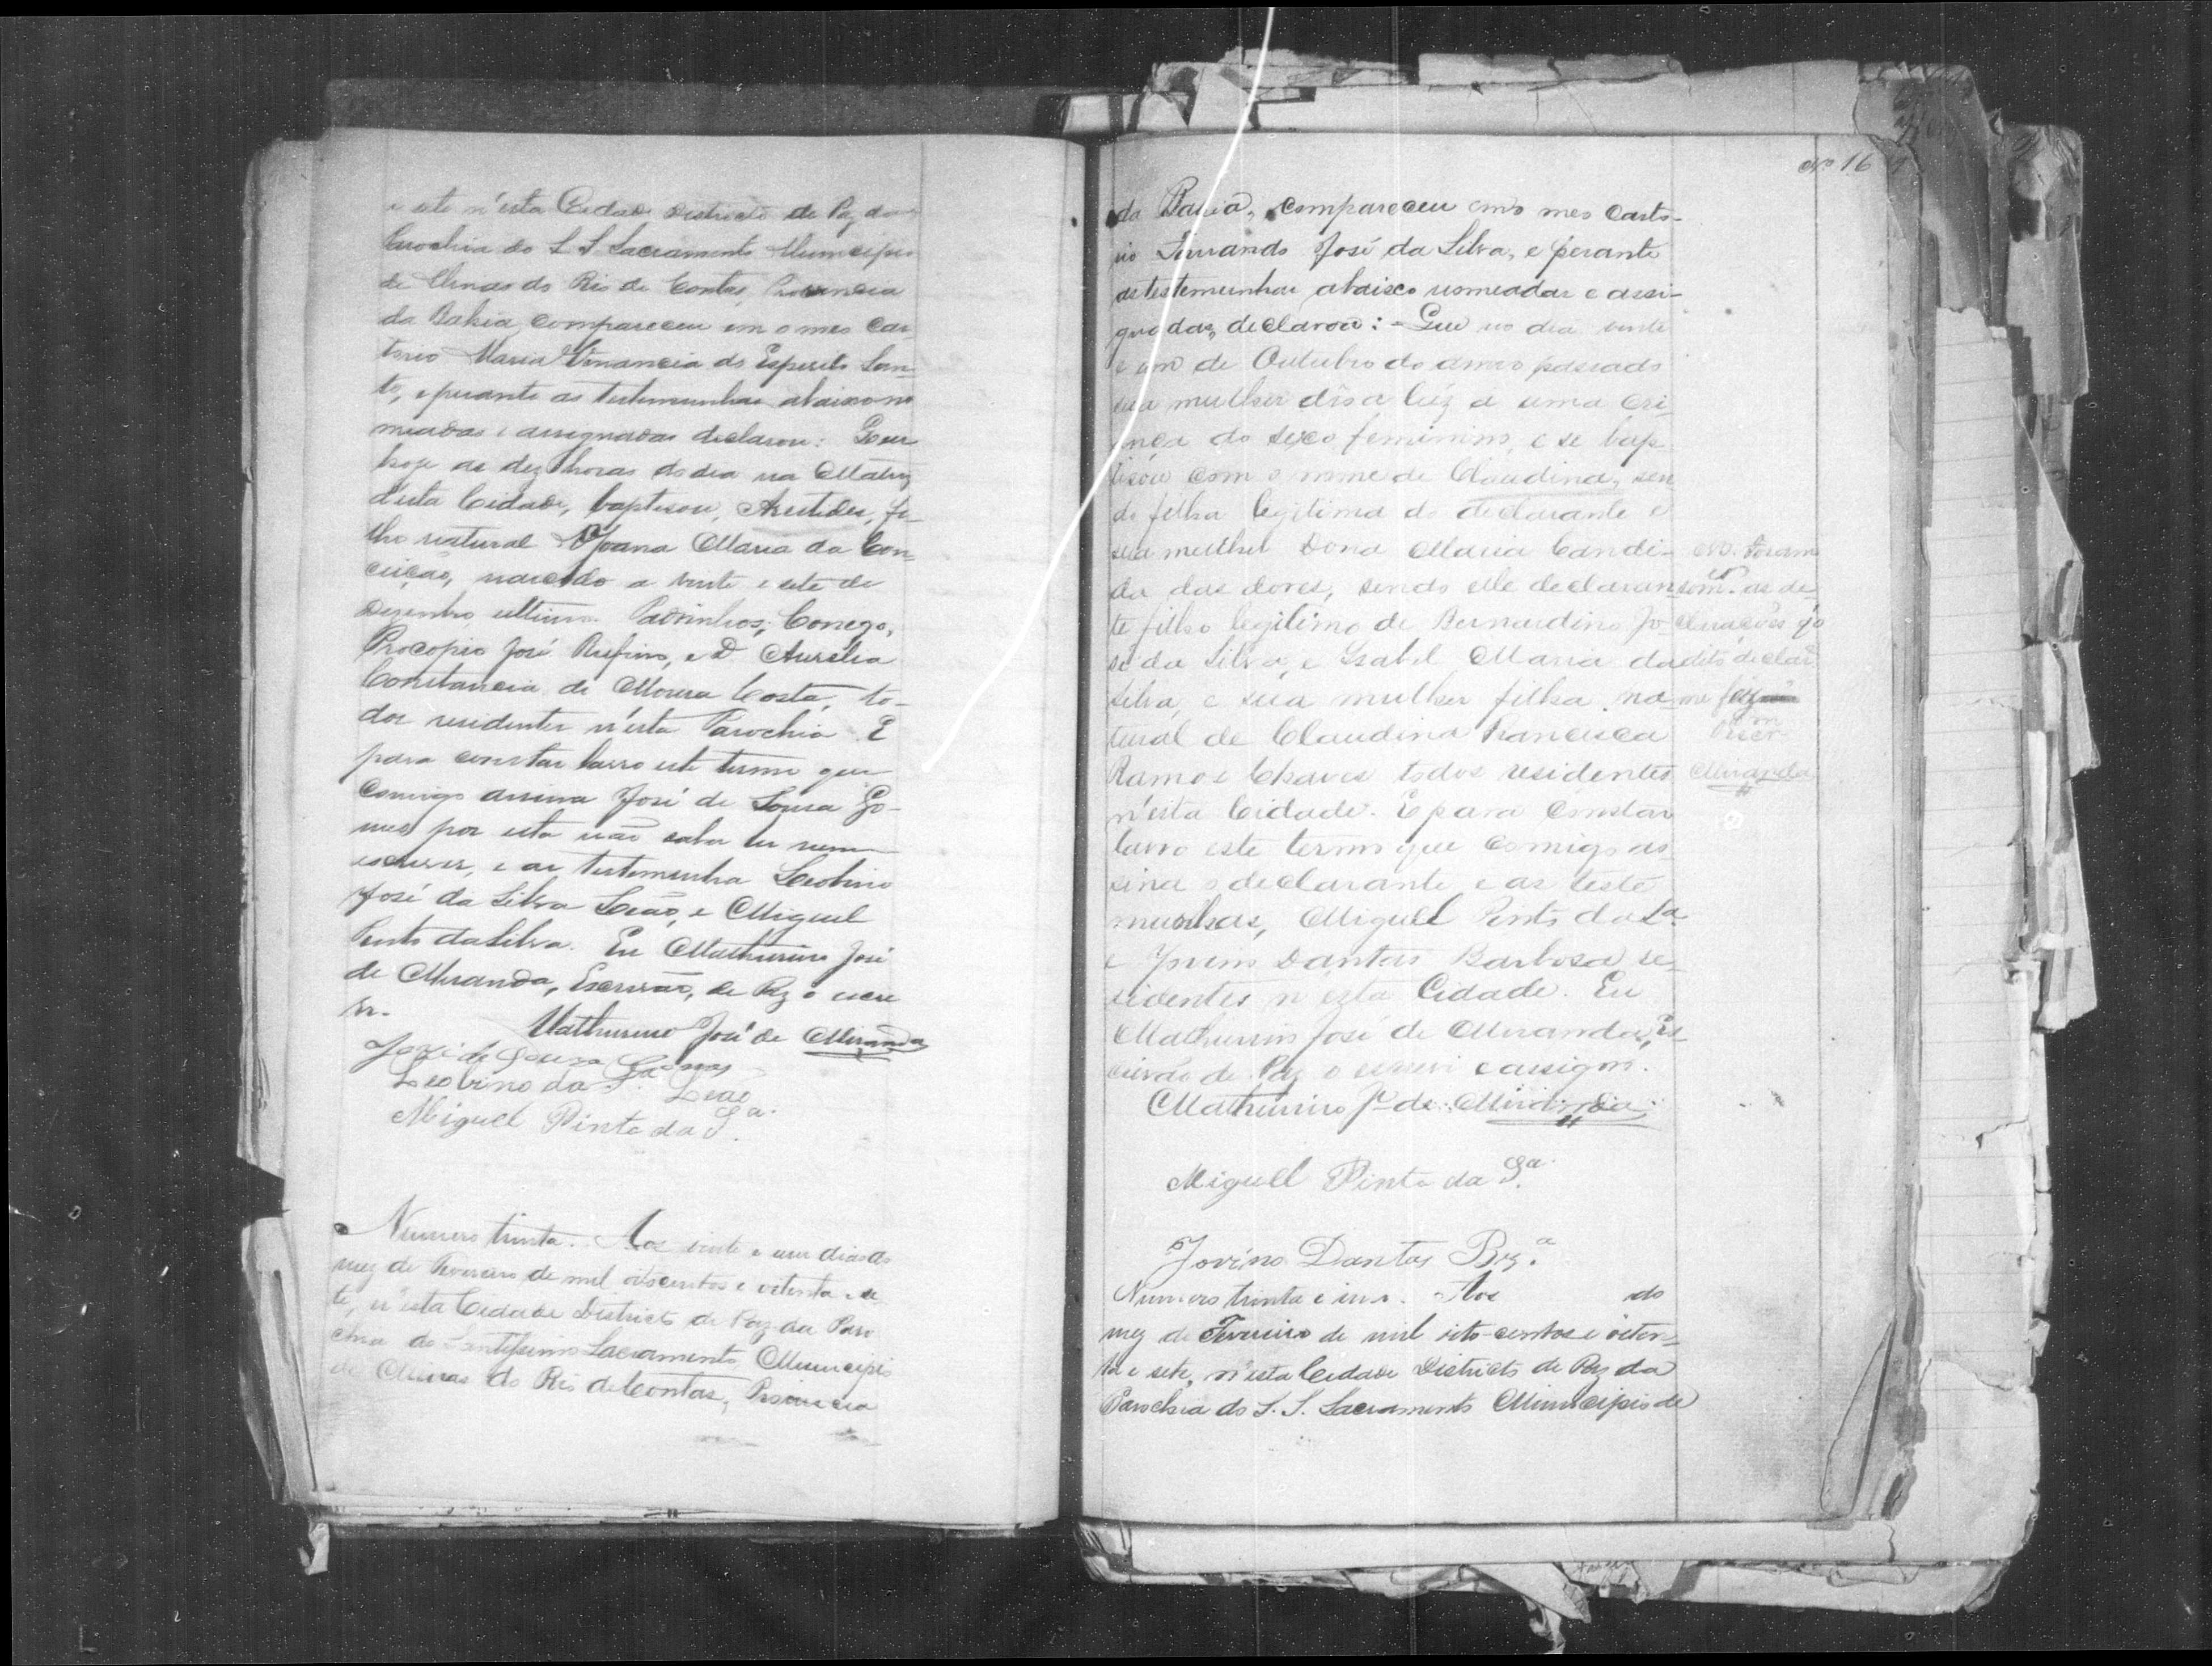 e sete n'esta Cidade Districto de Paz da
Parochia do S. S. Sacramento Municipio
de Minas do Rio de Contas, Provincia
da Bahia, compareceu em o meo Car
torio Maria Venancia do Espirito San
to, e perante as testemunhas abaixo no
meadas e assignadas declarou: Que
hoje as dez horas do dia na Matriz
d'esta Cidade, baptisou, Aristides, fi-
lho natural Joana Maria da Con-
ceição, nascido a vinte e sete de
Dezembro ultimo. Padrinhos, Conego,
Procopio José Rufino, e D. Aurelia
Constancia de Moura Costa, to-
dos residentes n'esta Parochia. E
para constar lavro este termo que
comigo assina José de Sousa Go-
mes por esta não saber ler nem
escrever, e as testemunha Leobino
José da Silva Leão, e Miguel
Pinto da Silva. Eu Mathurino José
de Miranda, Escrivão, de Paz o escre
vi.
Mathurino José de Miranda
José de Souza Gomes
Leobino da Sª Leão
Miguel Pinto da Sª.
Numero trinta. Aos vinte e um dias do
mez de Fevereiro de mil oitocentos e oitenta e se
te, n'esta Cidade Districto de Paz da Paro
chia do Santissimo Sacramento, Municipio
de Minas do Rio de Contas, Provincia
Nº 16
da Bahia, compareceu em o meo Carto-
rio José da Silva, e perante
as testemunhas abaixo nomeadas e assi-
gnadas, declarou: - Que no dia vinte
e um de Outubro do anno passado
sua mulher dêo a lúz a uma cri-
ança do sexo feminino, e se bap
tisou com o nome de Claudina, sen
do filha legitima do declarante e
sua mulher Dona Maria Candi-
da das dores, sendo elle declaran
te filho legitimo de Bernardino Jo-
sé da Silva, e Isabel Maria da
Silva, e sua mulher filha na
tural de Claudina Francisca
Ramos Chaves todos residentes
n'esta Cidade. E para constar
lavro este termo que comigo as
sina o declarante e as teste
munhas, Miguel Pinto da Sª.
e Jovino Dantas Barbosa re-
sidentes n'esta Cidade. Eu
Mathurino José de Miranda, Es-
crivão de Paz o escrevi e assigno.
Mathurino Jº de Miranda
Miguel Pinto da Sª.
Jovino Dantas Brzª.
Numero trinta e um. Aos do
mez de Fevereiro de mil oito-centos e oiten-
ta e sete, n'esta Cidade Districto de Paz da
Parochia do S. S. Sacramento Municipio de
NB. Foram
as de
clarações
dito declar
Miranda